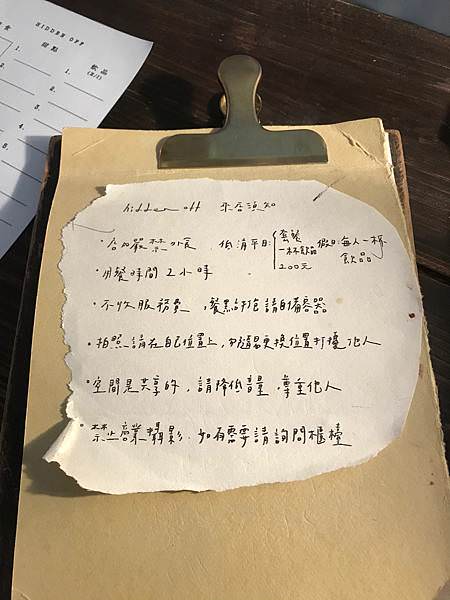 HIDDEN OFF
甜點
飲品
1.
1.
2.
2.
3.
4.
5.
hidden off 來店須知
·店內嚴禁外食 低消平日:套餐 一杯飲品 200元 假日:每人一杯飲品
·用餐時間2小時
·不收服務費，餐點打包請自備容器
·拍照請在自己位置上，勿隨意更換位置打擾他人
·空間是共享的，請降低音量，尊重他人
·禁止商業攝影，如有需要請詢問櫃檯